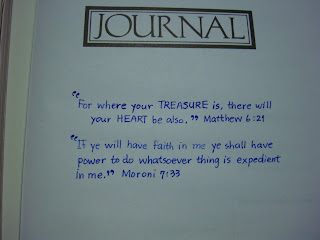 JOURNAL
"For where your TREASURE is, there will
your HEART be also." Matthew 6:21
"If ye will have faith in me ye shall have
power to do whatsoever thing is expedient
in me." Moroni 7:33